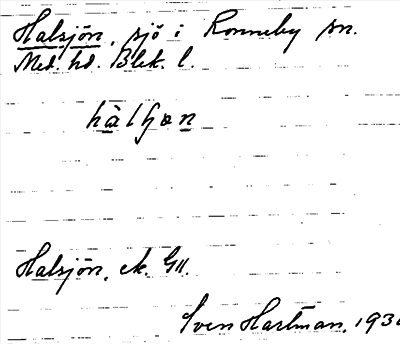 Halsjön, sjö i Ronneby sn.
Med. hd. Blek. l.
hàlʃøn
Halsjön, ek. G11.
Sven Hartman, 193